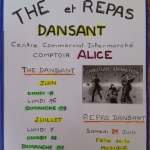 THE et REPAS
DANSANT
Centre Commercial Intermarché
COMPTOIR ALICE
THE DANSANT
JUIN
LUNDI
LUNDI 16
DIMANCHE
JUILLET
LUNDI
DIMANCHE
CHRISTIAN ANIMATION
REPAS DANSANT
Samedi 21 Juin
Fête de la
MUSIQUE